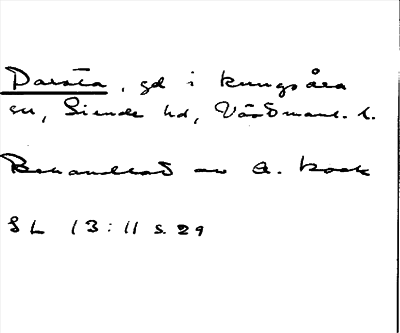 Darsta, gd i Kungsåra
sn, Siende hd, Västmanl. l.
Behandlad av A. Kock
SL 13:11 s. 29